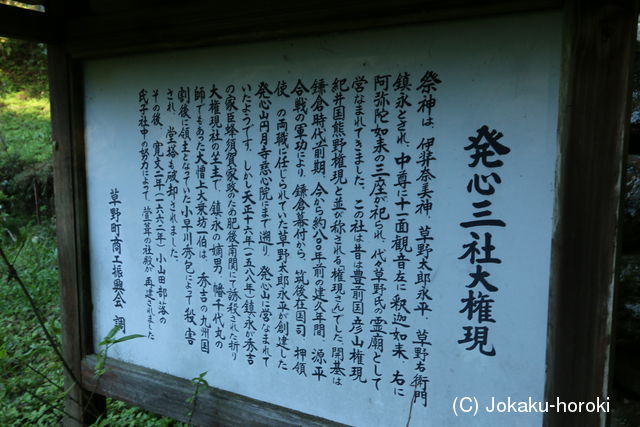 発心三社大権現
祭神は、伊弉奈美神、草野太郎永平、草野右衛門
鎮永とされ、中尊に十一面観音、左に釈迦如来、右に
阿弥陀如来の三座が祀られ、代々草野氏の霊廟として
営なまれてきました。この社は昔は豊前国彦山権現
紀井国熊野権現と並び称される権現さんでした。開基は
鎌倉時代前期、今から約八〇〇年前の建久年間、源平
合戦の軍功により、鎌倉幕府から、筑後在国司、押領
使、の両職に任じられていた草野太郎永平が創建した
発心山円月寺慈心院にまで遡り、発心山に営なまれて
いたようです。しかし天正十六年(一五八八年)鎮永が秀吉
の家臣蜂須賀家政のため肥後南関にて誘殺された折り
大権現社の坐主で、鎮永の嫡男、幡千代丸の
師でもあった大僧上大乗坊一伯は、秀吉の九州国
割後に領主となっていた小早川秀包によって殺害
され、堂塔も破却されました。
その後、寛文二年(一六六二年)小山田部落の
氏子社中の努力によって、萱葺の社殿が再建されました
草野町商工振興会 調
(C) Jokaku-horoki